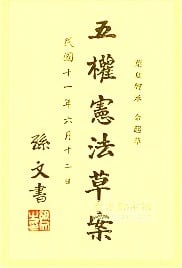 葉夏聲承 命起草
五權憲法草案
民國十一年六月十二日
孫文書